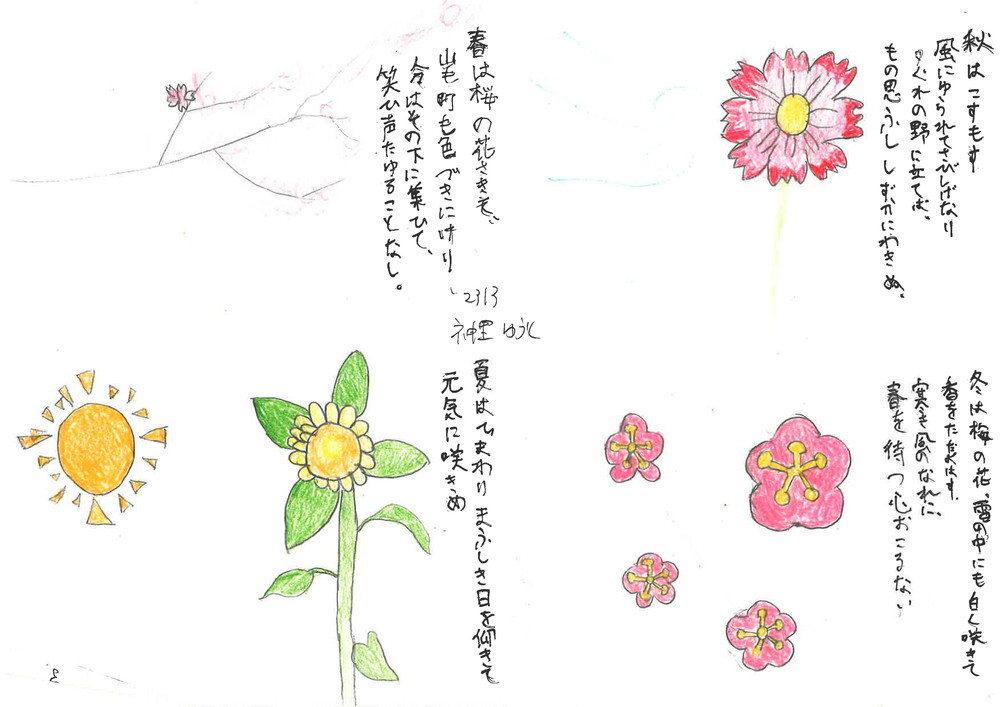 春は桜の花さきも、
山も町も色づきにけり
人々はその下に集ひて、
笑ひ声たゆることなし。
夏はひまわりまぶしき日を仰ぎて
元気に咲きぬ
秋はこすもす
風にゆられてさびしげなり
ゆぐれの野に立てば、
もの思ふししずかにわきぬ。
冬は梅の花、雪の中にも白く咲きて
香をただよはす
寒き風のなれに、
春を待つ心おこるない
2313
神里 ゆう